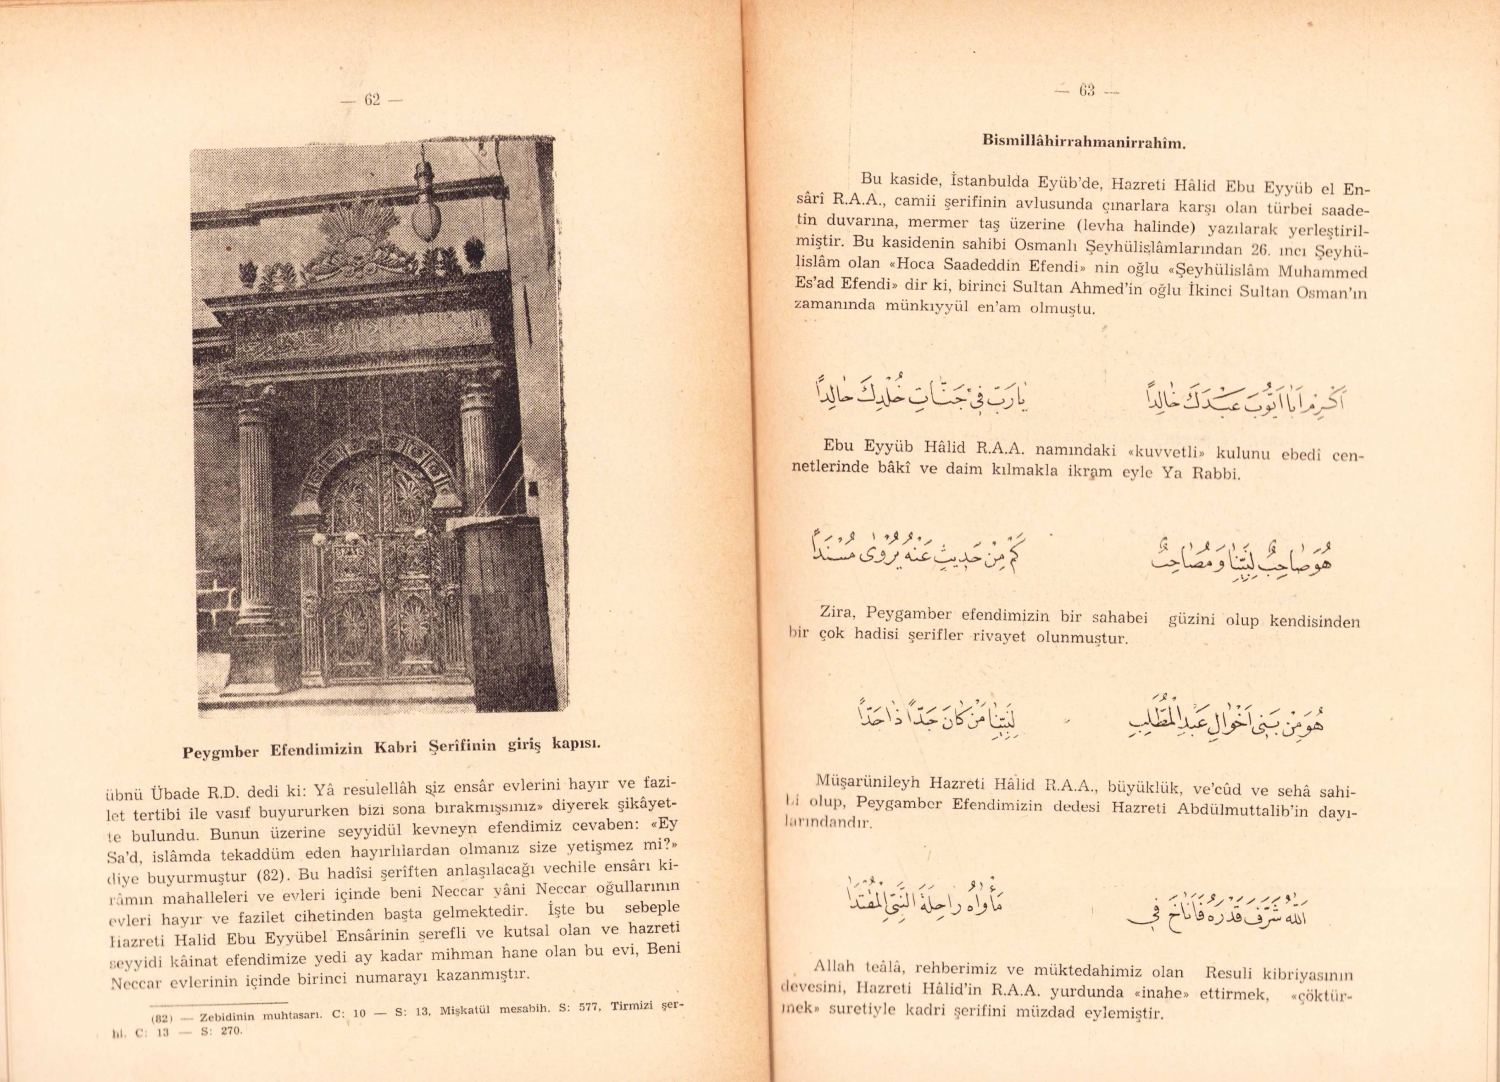 — 62 —
Peygmber Efendimizin Kabri Şerîfinin giriş kapısı.
übnü Übade R.D. dedi ki: Yâ resulellâh siz ensâr evlerini hayır ve fazi-
let tertibi ile vasıf buyururken bizi sona bırakmışsınız» diyerek şikâyet-
te bulundu. Bunun üzerine seyyidül kevneyn efendimiz cevaben: «Ey
Sa'd, islâmda tekaddüm eden hayırlılardan olmanız size yetişmez mi?»
diye buyurmuştur (82). Bu hadîsi şeriften anlaşılacağı vechile ensârı ki-
râmın mahalleleri ve evleri içinde beni Neccar yâni Neccar oğullarının
evleri hayır ve fazilet cihetinden başta gelmektedir. İşte bu sebeple
Hazreti Halid Ebu Eyyübel Ensârinin şerefli ve kutsal olan ve hazreti
seyyidi kâinat efendimize yedi ay kadar mihman hane olan bu evi, Beni
Neccar evlerinin içinde birinci numarayı kazanmıştır.
(82) — Zebidinin muhtasarı. C: 10 — S: 13, Mişkatül mesabih. S: 577, Tirmizi şer-
hi. C: 13 — S: 270.
— 63 —
Bismillâhirrahmanirrahîm.
Bu kaside, İstanbulda Eyüb'de, Hazreti Hâlid Ebu Eyyüb el En-
sârî R.A.A., camii şerifinin avlusunda çınarlara karşı olan türbei saade-
tin duvarına, mermer taş üzerine (levha halinde) yazılarak yerleştiril-
miştir. Bu kasidenin sahibi Osmanlı Şeyhülislâmlarından 26. ıncı Şeyhü-
lislâm olan «Hoca Saadeddin Efendi» nin oğlu «Şeyhülislâm Muhammed
Es'ad Efendi» dir ki, birinci Sultan Ahmed'in oğlu İkinci Sultan Osman'ın
zamanında münkıyyül en'am olmuştu.
اَكْرِمْ اَبَا اَيُّوبَ عَبْدَكَ خَالِدًا يَارَبِّ فِي جَنَّاتِ خُلْدِكَ خَالِدًا
Ebu Eyyüb Hâlid R.A.A. namındaki «kuvvetli» kulunu ebedî cen-
netlerinde bâkî ve daim kılmakla ikram eyle Ya Rabbi.
هُوَ صَاحِبٌ لِنَبِيِّنَا وَمُصَاحِبٌ كَمْ مِنْ حَدِيثٍ عَنْهُ يُرْوٰى مُسْنَدًا
Zira, Peygamber efendimizin bir sahabei güzini olup kendisinden
bir çok hadisi şerifler rivayet olunmuştur.
هُوَ مِنْ بَنِي اَخْوَالِ عَبْدِ الْمُطَّلِبِ لِنَبِيِّنَا مَنْ كَانَ جَدًّا ذَا جَدًا
Müşarünileyh Hazreti Hâlid R.A.A., büyüklük, ve'cûd ve sehâ sahi-
bi olup, Peygamber Efendimizin dedesi Hazreti Abdülmuttalib'in dayı-
larındandır.
اَللّٰهُ شَرَّفَ قَدْرَهُ فَاَنَاخَ فِي مَأْوَاهُ رَاحِلَةَ النَّبِيِّ الْمُقْتَدَا
Allah teâlâ, rehberimiz ve müktedahimiz olan Resuli kibriyasının
devesini, Hazreti Hâlid'in R.A.A. yurdunda «inahe» ettirmek, «çöktür-
mek» suretiyle kadri şerifini müzdad eylemiştir.